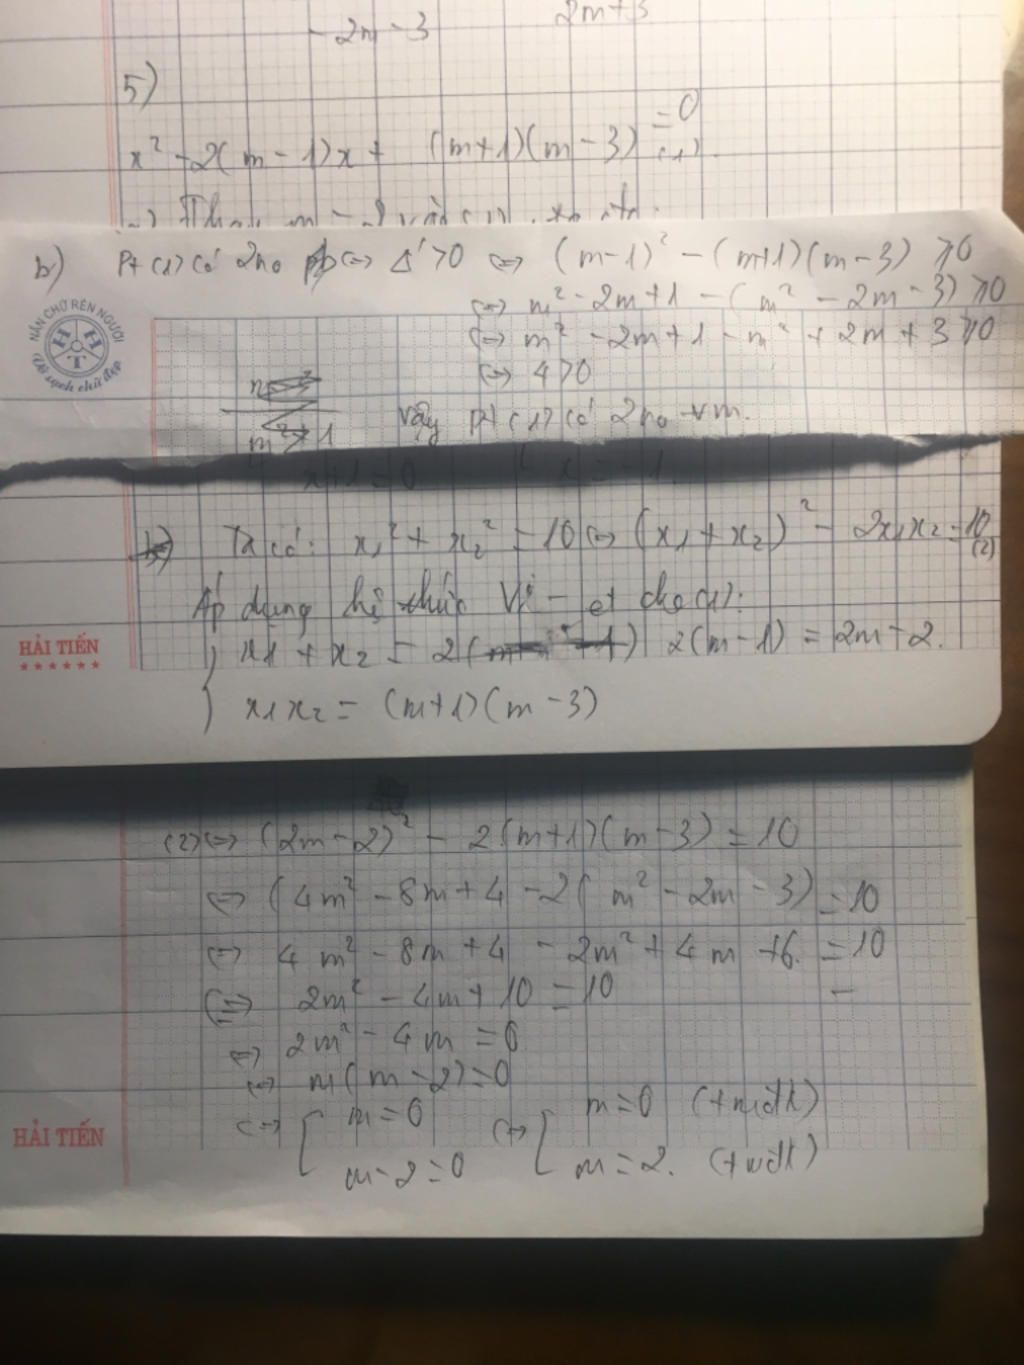 -2m-3 2m+3
5)
x² - 2(m-1)x + (m+1)(m-3) = 0 (1)
b) Pt (1) có 2 no pb <=> Δ' > 0 <=> (m-1)² - (m+1)(m-3) ≥ 0
<=> m² - 2m + 1 - (m² - 2m - 3) ≥ 0
<=> m² - 2m + 1 - m² + 2m + 3 ≥ 0
<=> 4 > 0
Vậy Pt (1) có 2 no ∀m.
NẮN CHỮ RÈN NGƯỜI
H H T
Vở sạch chữ đẹp
x+1=0 x=-1
Ta có: x₁² + x₂² = 10 <=> (x₁ + x₂)² - 2x₁x₂ = 10 (2)
Áp dụng hệ thức Vi-et cho (1):
HẢI TIẾN
{ x1 + x2 = 2( 2(m-1) = 2m-2.
x1x2 = (m+1)(m-3)
(2) <=> (2m-2)² - 2(m+1)(m-3) = 10
<=> (4m² - 8m + 4 - 2(m² - 2m - 3) = 10
<=> 4m² - 8m + 4 - 2m² + 4m + 6. = 10
<=> 2m² - 4m + 10 = 10
<=> 2m² - 4m = 0
<=> m(m-2) = 0
<=> [ m = 0 <=> [ m = 0 (tmđk)
HẢI TIẾN
m-2 = 0 m = 2. (tmđk)